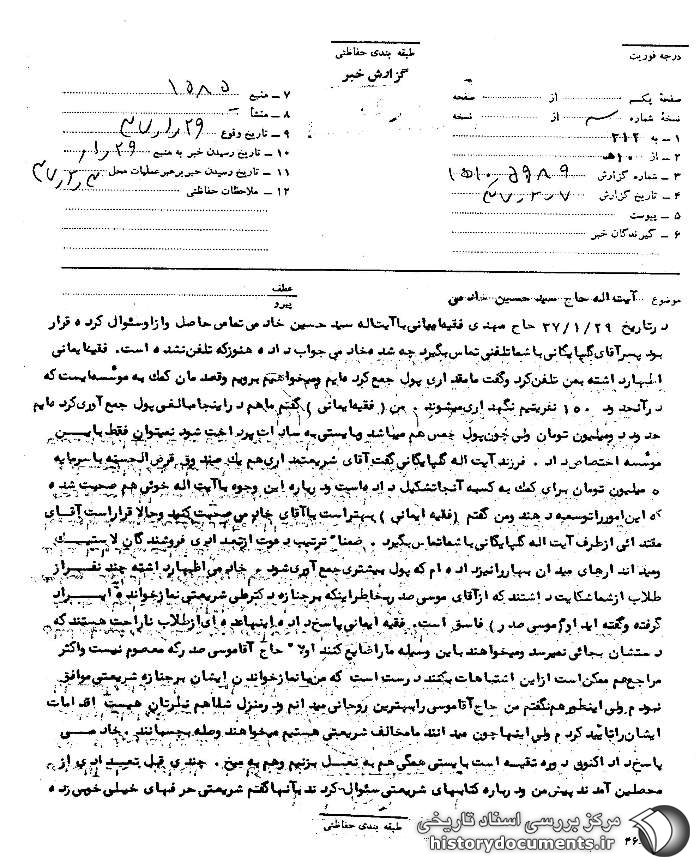 طبقه بندی حفاظتی
درجه فوریت
گزارش خبر
صفحهٔ یکم از صفحه
نسخهٔ شماره سه از نسخه
۱ – به ۳۱۲
۲ – از ۱۰ه‍
۳ – شماره گزارش
۴ – تاریخ گزارش
۵ – پیوست
۶ – گیرندگان خبر
۷ – منبع ۱۵۸۵
۸ – منشأ
۹ – تاریخ وقوع ۳۷ر۱ر۲۹
۱۰ – تاریخ رسیدن خبر به منبع ۲۹ر۱ر
۱۱ – تاریخ رسیدن خبر برهبر عملیات محل
۱۲ – ملاحظات حفاظتی
موضوع آیت اله حاج سید حسین خادمی
عطف
پیرو
در تاریخ ۳۷/۱/۲۹ حاج مهدی فقیه ایمانی با آیت اله سید حسین خادمی تماس حاصل و از او سئوال کرد ه قرار
بود پسر آقای گلپایگانی با شما تلفنی تماس بگیرد چه شد ه خادمی جواب داد ه هنوز که تلفن نشد ه است . فقیه ایمانی
اظهارد اشته بمن تلفن کرد و گفت ما مقداری پول جمع کرد ه ایم و میخواهیم برویم وقصد مان کمک به موسسه ایست که
در آنحدود ۱۵۰ نفر یتیم نگهد اری میشوند . من ( فقیه ایمانی ) گفتم ما هم در اینجا مبالغی پول جمع آوری کرد ه ایم
حدود دو میلیون تومان ولی چون پول خمس هم میباشد و بایستی به سادات پرد اخت شود نمیتوان فقط باین
موسسه اختصاص داد . فرزند آیت اله گلپایگانی گفت آقای شریعتمد اری هم یک صندوق قرض الحسنه با سرمایه
۵ میلیون تومان برای کمک به کسبه آنجا تشکیل داد ه است و در باره این وجوه با آیت اله خوئی هم صحبت شد ه
که این امور را توسعه دهند و من گفتم (فقیه ایمانی ) بهتر است با آقای خادمی صحبت کنید و حالا قرار است آقای
مقتدائی از طرف آیت اله گلپایگانی با شما تماس بگیرد . ضمنا" ترتیب دعوت از تعد ادی فروشندگان لاستیک
و مید اند ارهای مید ان بهار را نیز داد ه ام که پول بیشتری جمع آوری شود . خادمی اظهارد اشته چند نفر از
طلاب از شما شکایت داشتند که از آقای موسی صدر بخاطر اینکه بر جنازه دکتر علی شریعتی نماز خوانده ایراد
گرفته و گفته اید او (موسی صدر ) فاسق است . فقیه ایمانی پاسخ داد ه اینها عد ه ای از طلاب ناراحت هستند که
دستشان بجائی نمیرسد و میخواهند باین وسیله ما را ضایع کنند اولا" حاج آقا موسی صدر که معصوم نیست و اکثر
مراجع هم ممکن است از این اشتباهات بکنند درست است که من با نماز خواندن ایشان بر جنازه شریعتی موافق
نبودم ولی اینطور هم نگفتم من حاج آقا موسی را بهترین روحانی مید انم و در منزل شما هم نظرتان هست اقدامات
ایشان را تایید کردم ولی اینها چون مید انند ما مخالف شریعتی هستیم میخواهند وصله بچسبانند . خادمی
پاسخ داد اکنون دوره تقیه است بایستی همگی هم به نعل بزنیم و هم به میخ . چندی قبل تعد ادی از
محصلین آمدند پیش من و در باره کتابهای شریعتی سئوال کردند بآنها گفتم شریعتی حرفهای خیلی خوبی زده
طبقه بندی حفاظتی
مرکز بررسی اسناد تاریخی
historydocuments.ir